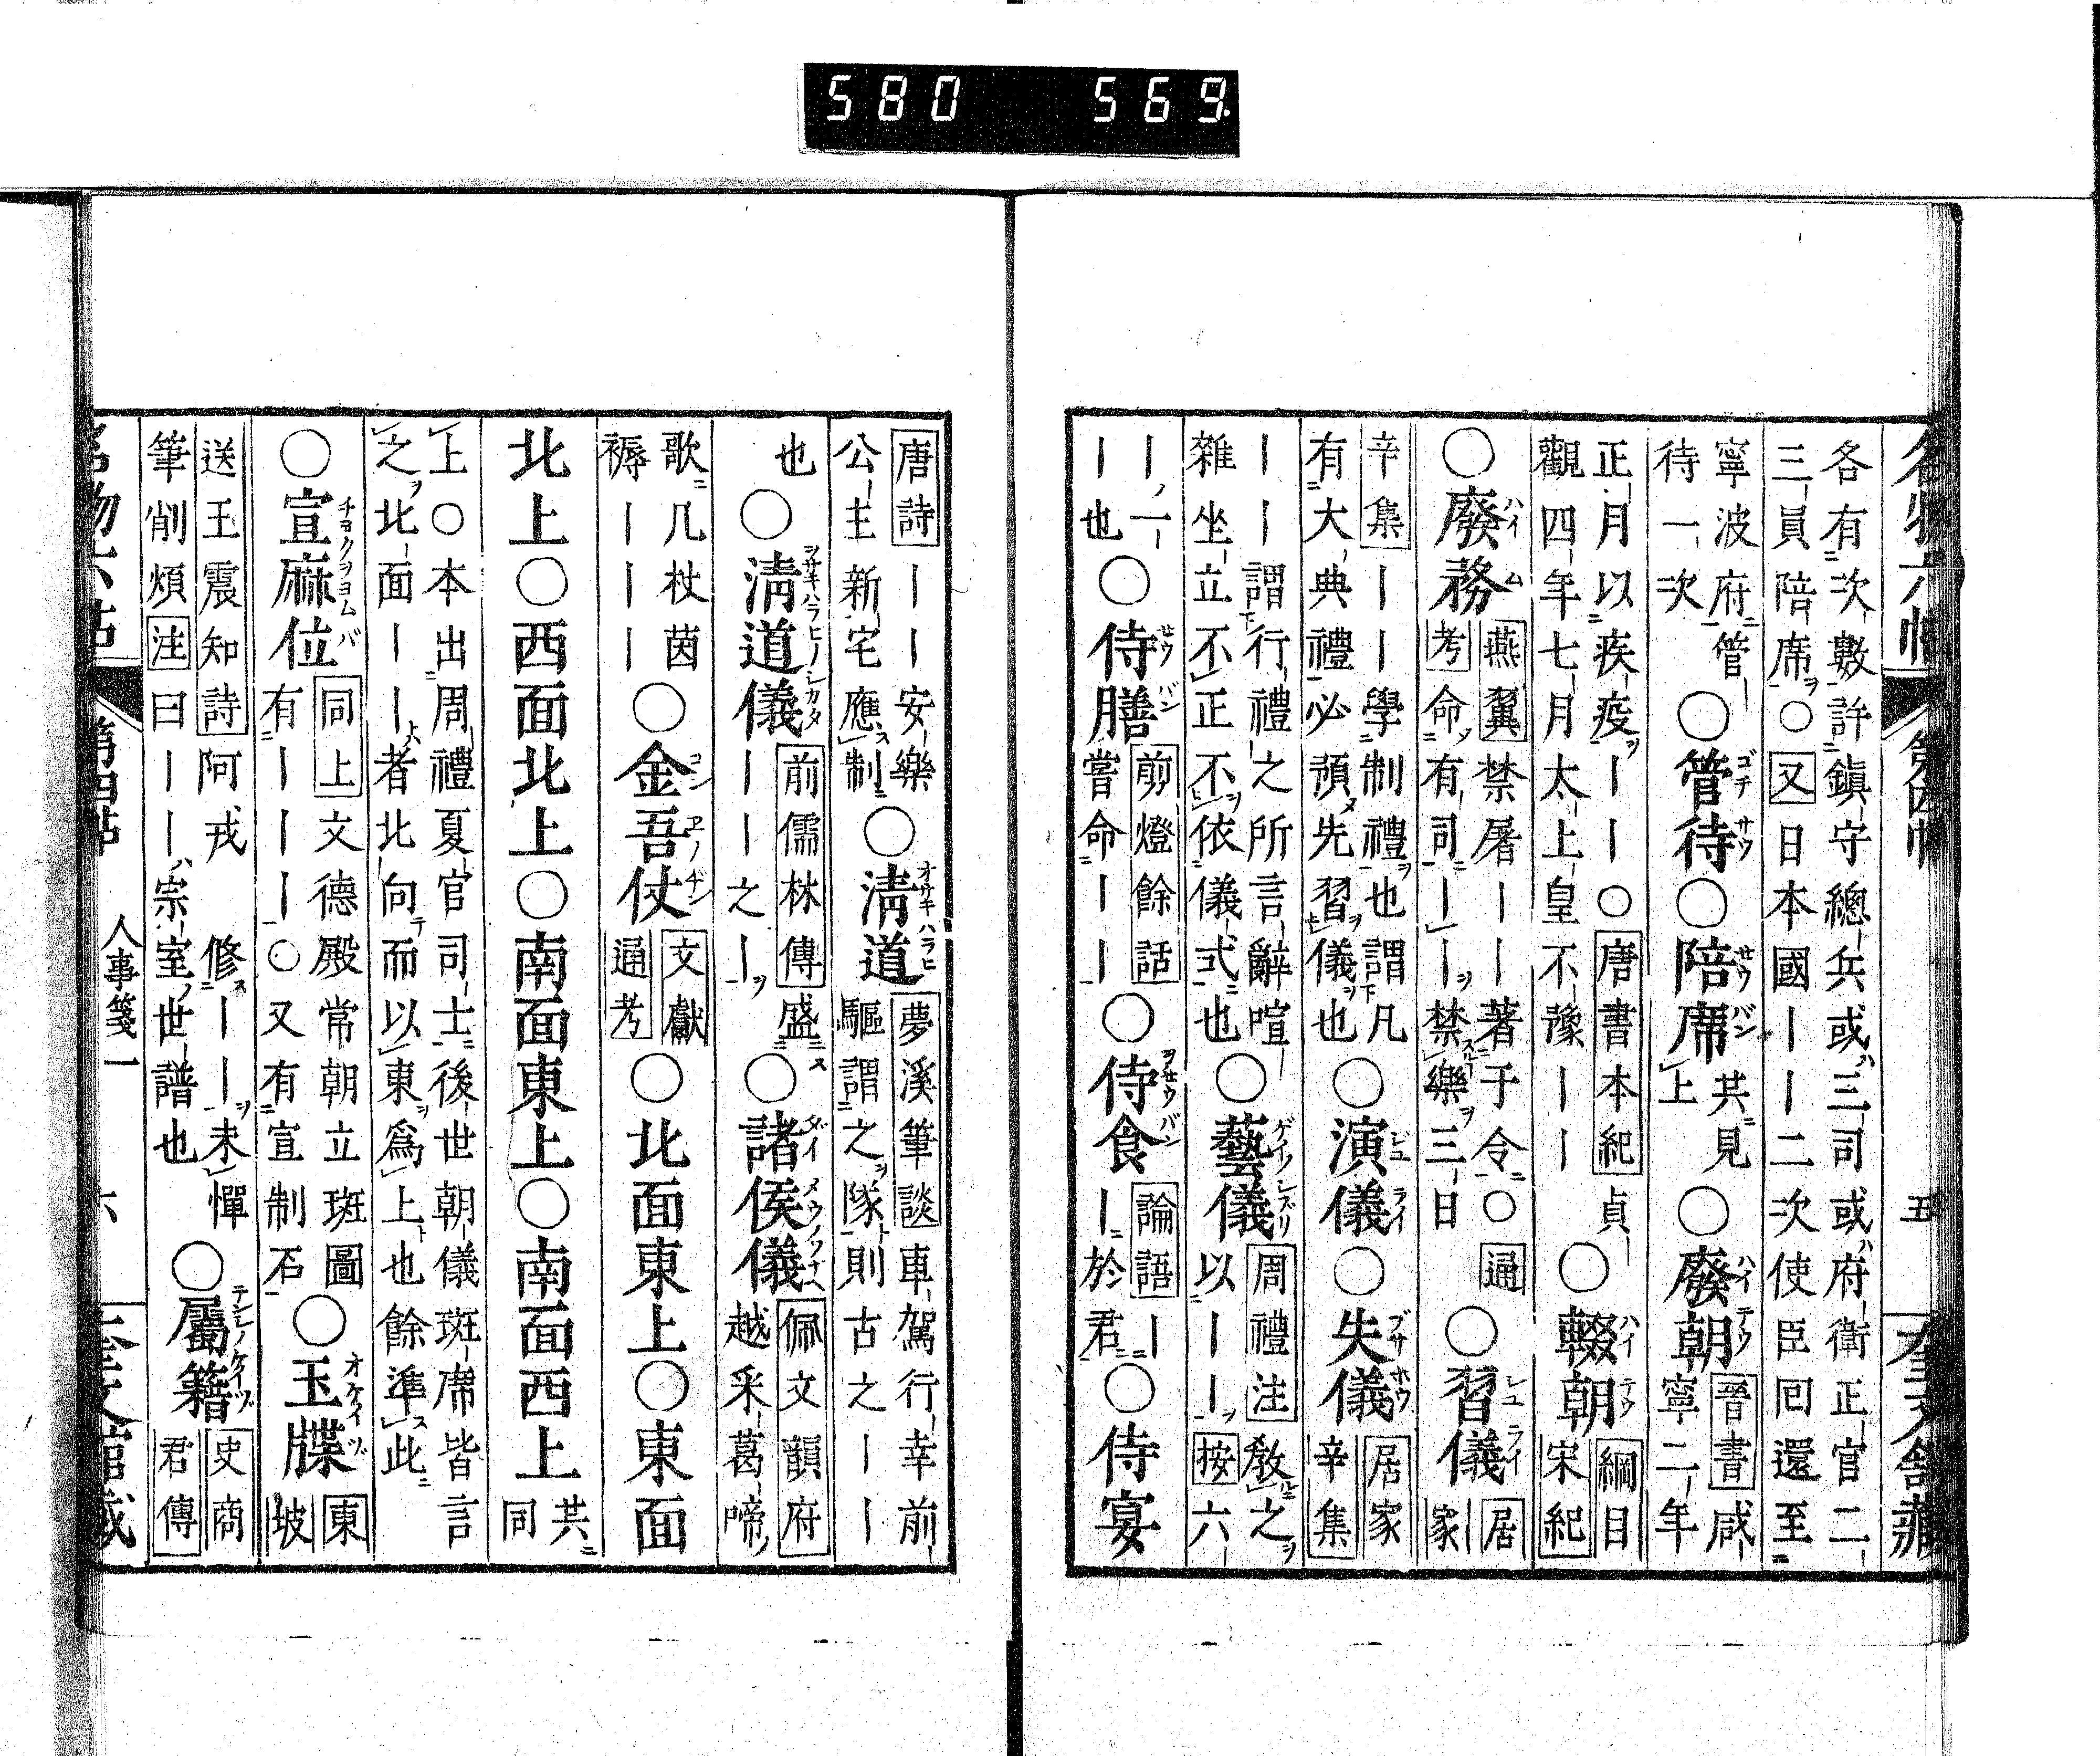 580 569
名物六帖 第四帖 五 奎文館藏
各有次數許鎮守總兵或三司或府衛正官二
三員陪席○又日本國――二次使臣回還至
寧波府管待一次○管待○陪席共見上○廢朝晉書咸寧二年
正月以疾疫――○唐書本紀貞觀四年七月太上皇不豫――○輟朝綱目宋紀
○廢務燕翼禁屠――著于令○通考命有司――禁樂三日○習儀居家
辛集―――學制禮也謂凡有大典禮必預先習儀也○演儀○失儀居家辛集
――謂行禮之所言辭喧雜坐立不正不依儀式也○藝儀周禮注教之以――按六
―ノ一―也○侍膳剪燈餘話嘗命――○侍食論語――於君○侍宴
唐詩――安樂公主新宅應制○淸道夢溪筆談車駕行幸前驅謂之隊則古之――
也○淸道儀前儒林傳盛―――之―○諸侯儀佩文韻府越釆葛啼
歌几杖茵褥―――○金吾仗文獻通考○北面東上○東面
北上○西面北上○南面東上○南面西上共同
上○本出周禮夏官司士後世朝儀班席皆言
之北面――者北向而以東爲上也餘準此
○宣麻位同上文德殿常朝立班圖有―――○又有宣制石○玉牒東坡
送王震知詩阿戎修――未憚筆削煩注曰―――宗室世譜也○屬籍史商君傳
名物六帖 第四帖 人事箋一 六 奎文館藏